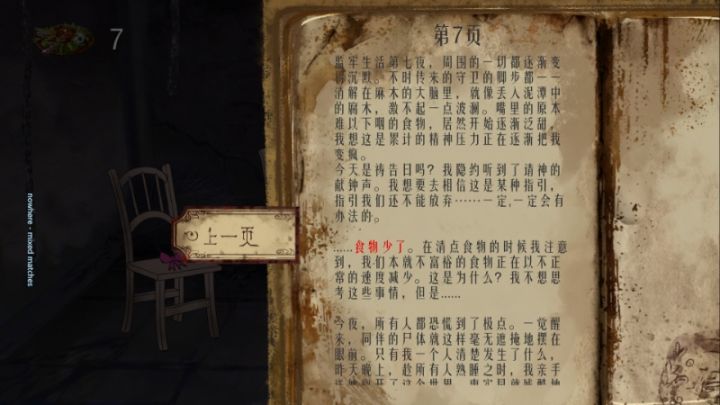 7
nowhere - mixed matches
上一页
第7页
监牢生活第七夜，周围的一切都逐渐变
得沉默。不时传来的守卫的脚步都一一
消解在麻木的大脑里，就像丢入泥潭中
的腐木，激不起一点波澜。嘴里的原本
难以下咽的食物，居然开始逐渐泛甜，
我想这是累计的精神压力正在逐渐把我
变疯。
今天是祷告日吗？我隐约听到了请神的
献钟声。我想要去相信这是某种指引，
指引我们还不能放弃……一定,一定会有
办法的。
……食物少了。在清点食物的时候我注意
到，我们本就不富裕的食物正在以不正
常的速度减少。这是为什么？我不想思
考这些事情，但是……
今夜，所有人都恐慌到了极点。一觉醒
来，同伴的尸体就这样毫无遮掩地摆在
眼前。只有我一个人清楚发生了什么，
昨天晚上，趁所有人熟睡之时，我亲手